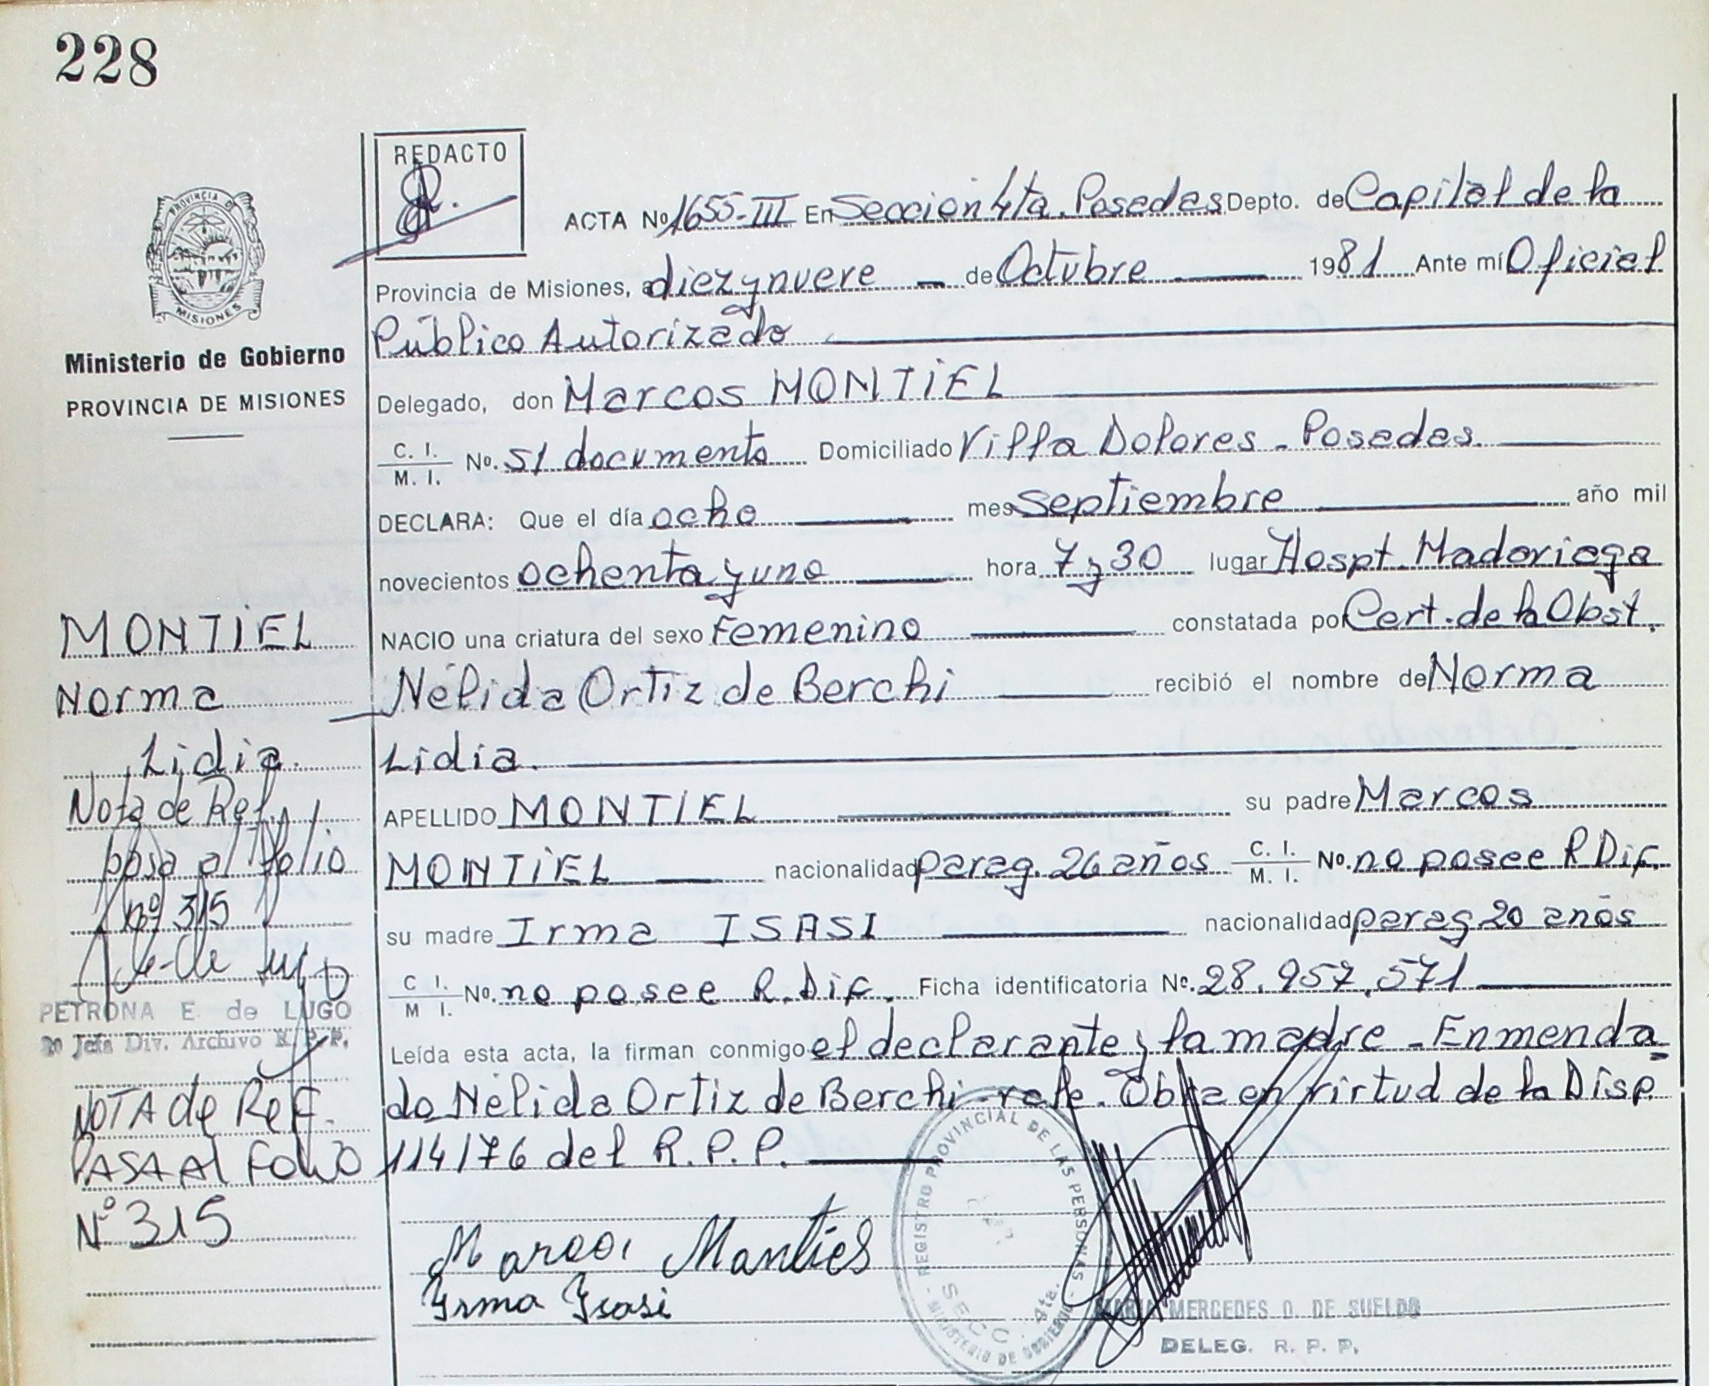 228
REDACTO
ACTA Nº 1655-III En Sección 4ta. Posadas Depto. de Capital de la
Provincia de Misiones, a diez y nueve de Octubre 1981 Ante mí Oficial
Público Autorizado
Delegado, don Marcos MONTIEL
C. I.
M. I.
No. S/ documento Domiciliado Villa Dolores - Posadas
DECLARA: Que el día ocho mes septiembre año mil
novecientos ochenta y uno hora 7 y 30 lugar Hospt. Madariaga
NACIO una criatura del sexo femenino constatada por Cert. de la Obst.
Nélida Ortiz de Berchi recibió el nombre de Norma
Lidia.
APELLIDO MONTIEL su padre Marcos
MONTIEL nacionalidad parag. 26 años C. I. M. I. No. no posee R Dif.
su madre Irma ISASI nacionalidad parag 20 años
C I. M I. No. no posee R. Dif. Ficha identificatoria No. 28.957.571
Leída esta acta, la firman conmigo el declarante y la madre - Enmenda
do Nélida Ortiz de Berchi - vale. Obta en virtud de la Disp
114/76 del R.P.P.
Marcos Montiel
Irma Isasi
REGISTRO PROVINCIAL DE LAS PERSONAS - MINISTERIO DE GOBIERNO
SECC. 4ta.
MARIA MERCEDES O. DE SUELDO
DELEG. R. P. P.
PROVINCIA D
MISIONES
Ministerio de Gobierno
PROVINCIA DE MISIONES
MONTIEL
Norma
Lidia.
Nota de Ref.
pasa al folio
nº 315
PETRONA E. de LUGO
Jefa Div. Archivo R. P. P.
NOTA de Ref.
PASA Al Folio
Nº 315